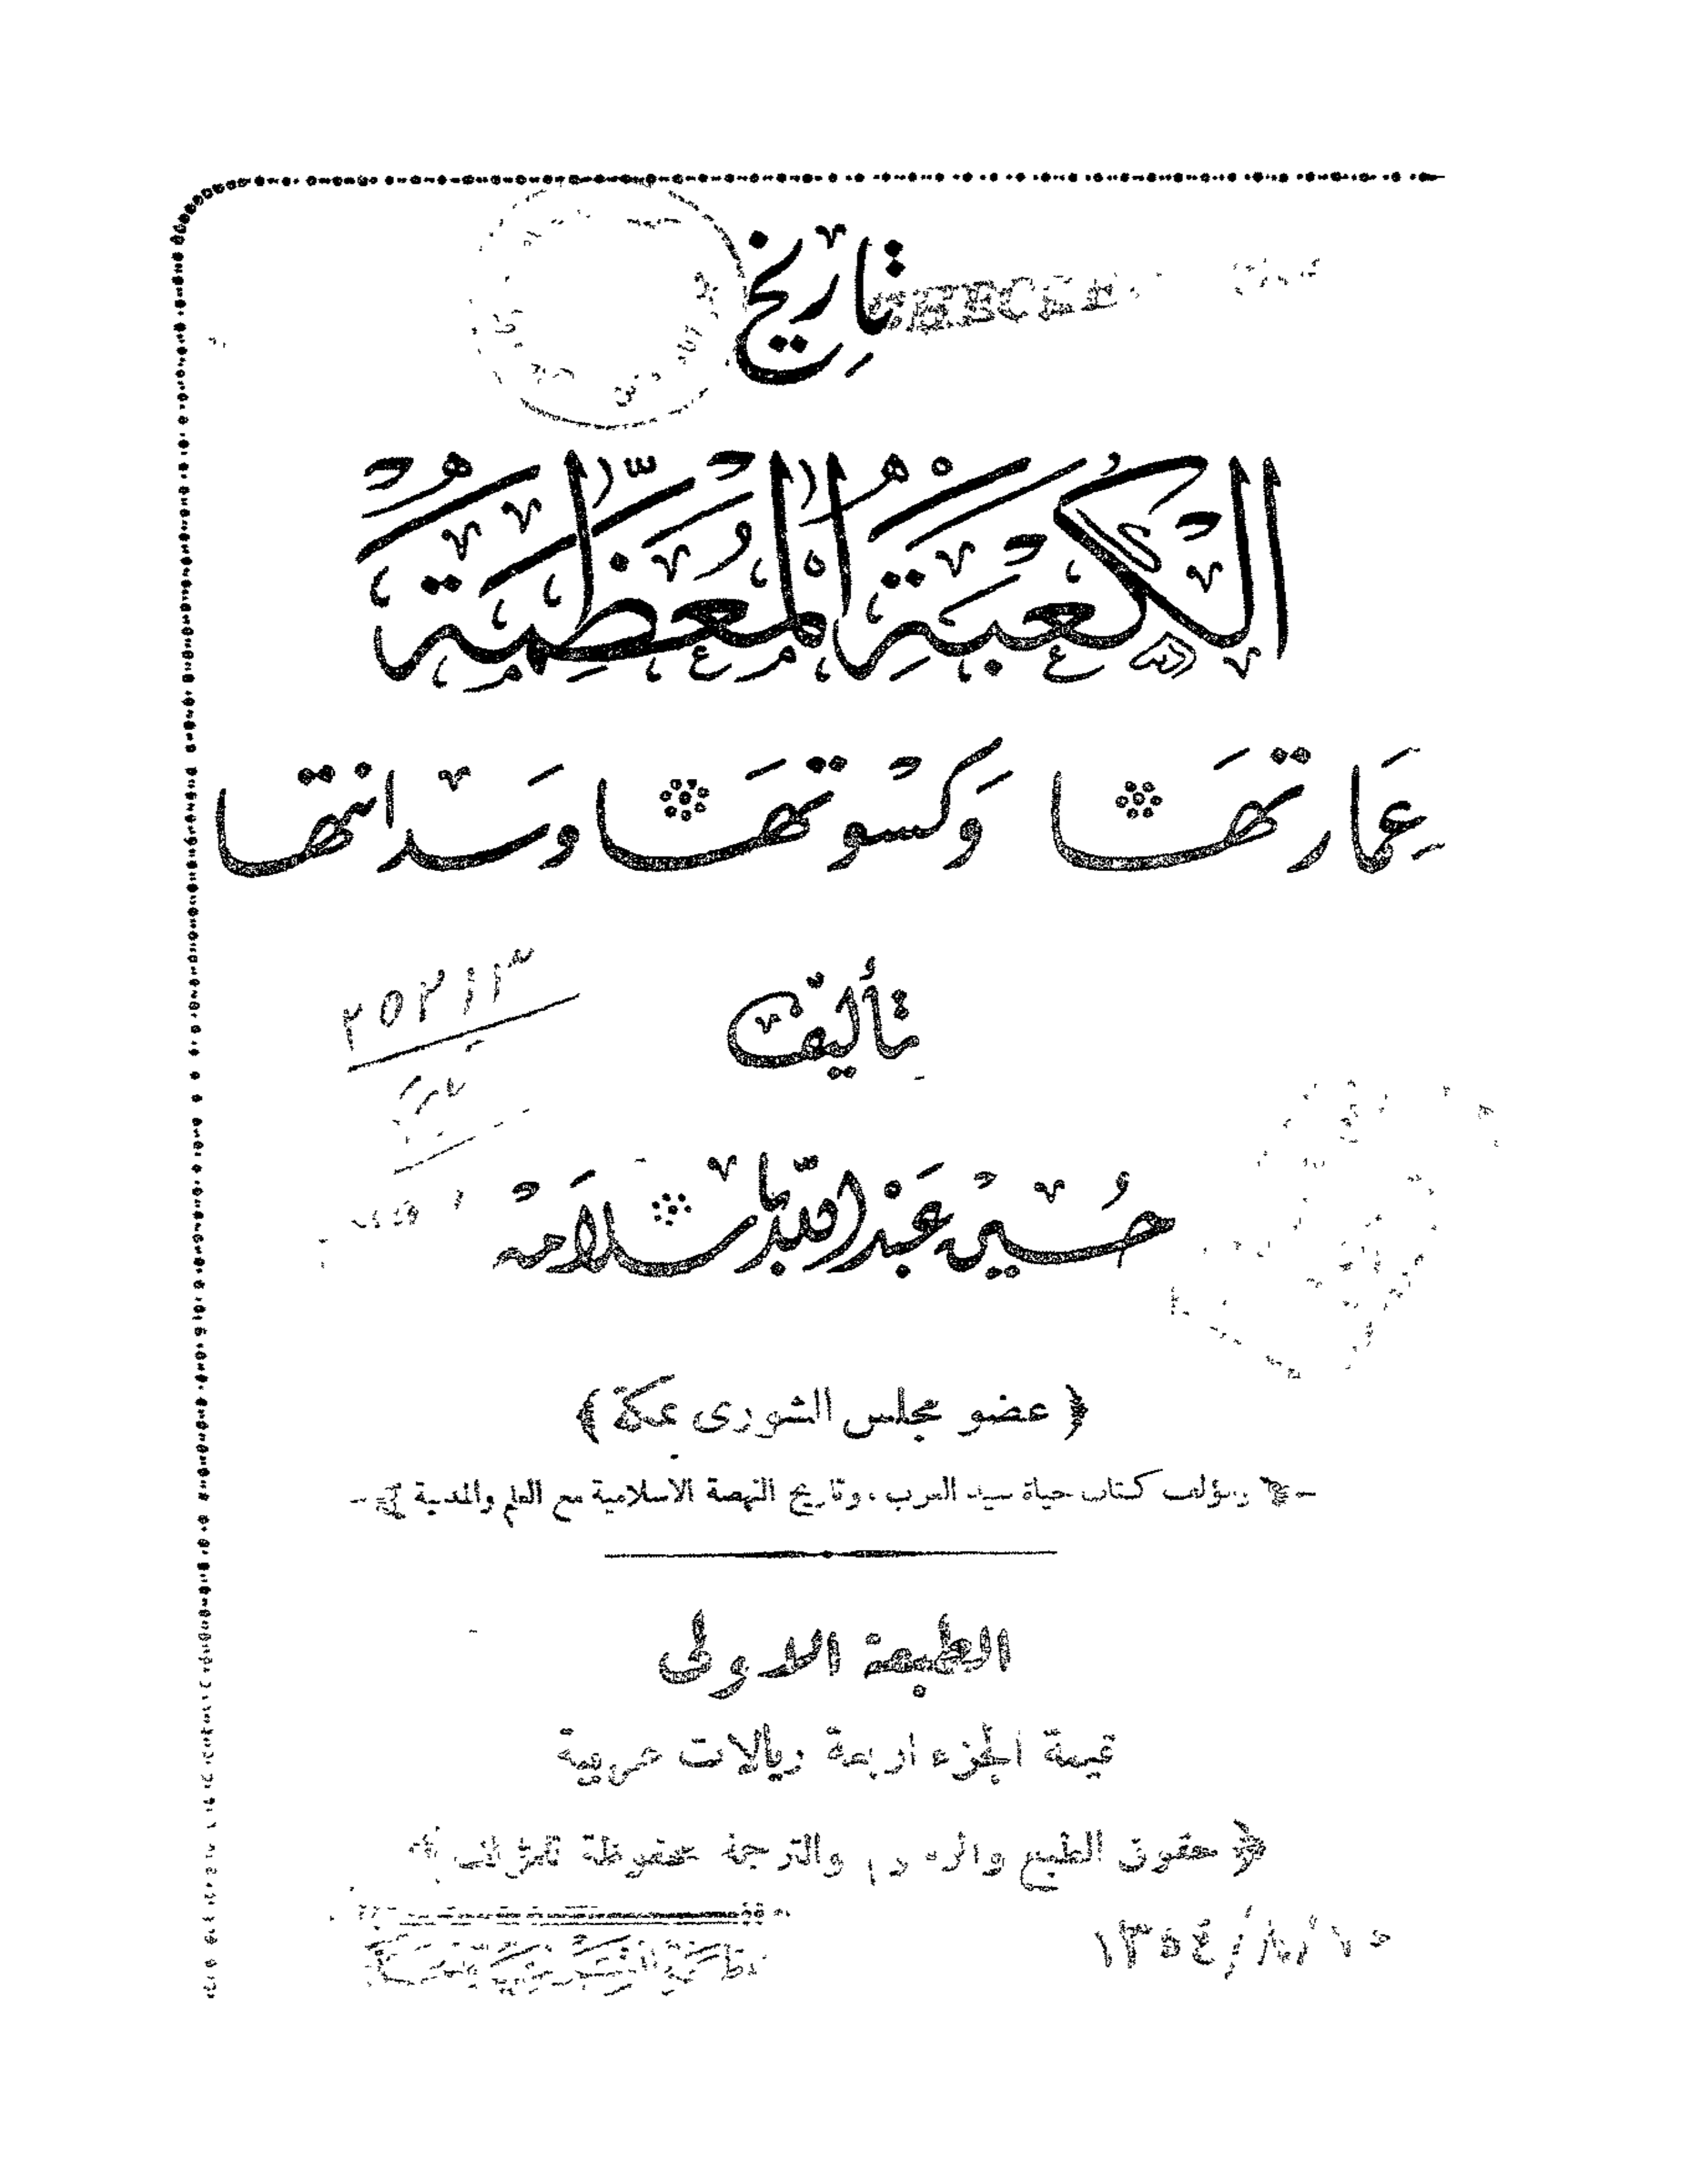 تاريخ
CHECKED
الكَعْبَةِ المُعَظَّمَةِ
عِمَارتهَا وَكسْوتهَا وسَدانتها
٣٥٢١٣
تأليف
حُسَين عَبْد الله باسَلَامَه
﴿ عضو مجلس الشورى بمكة ﴾
ومؤلف كتاب حياة سيد العرب، وتاريخ النهضة الاسلامية مع العلم والمدنية
الطبعة الاولى
قيمة الجزء اربعة ريالات عربية
﴿ حقوق الطبع والرسم والترجمة محفوظة للمؤلف ﴾
١٣٥٤